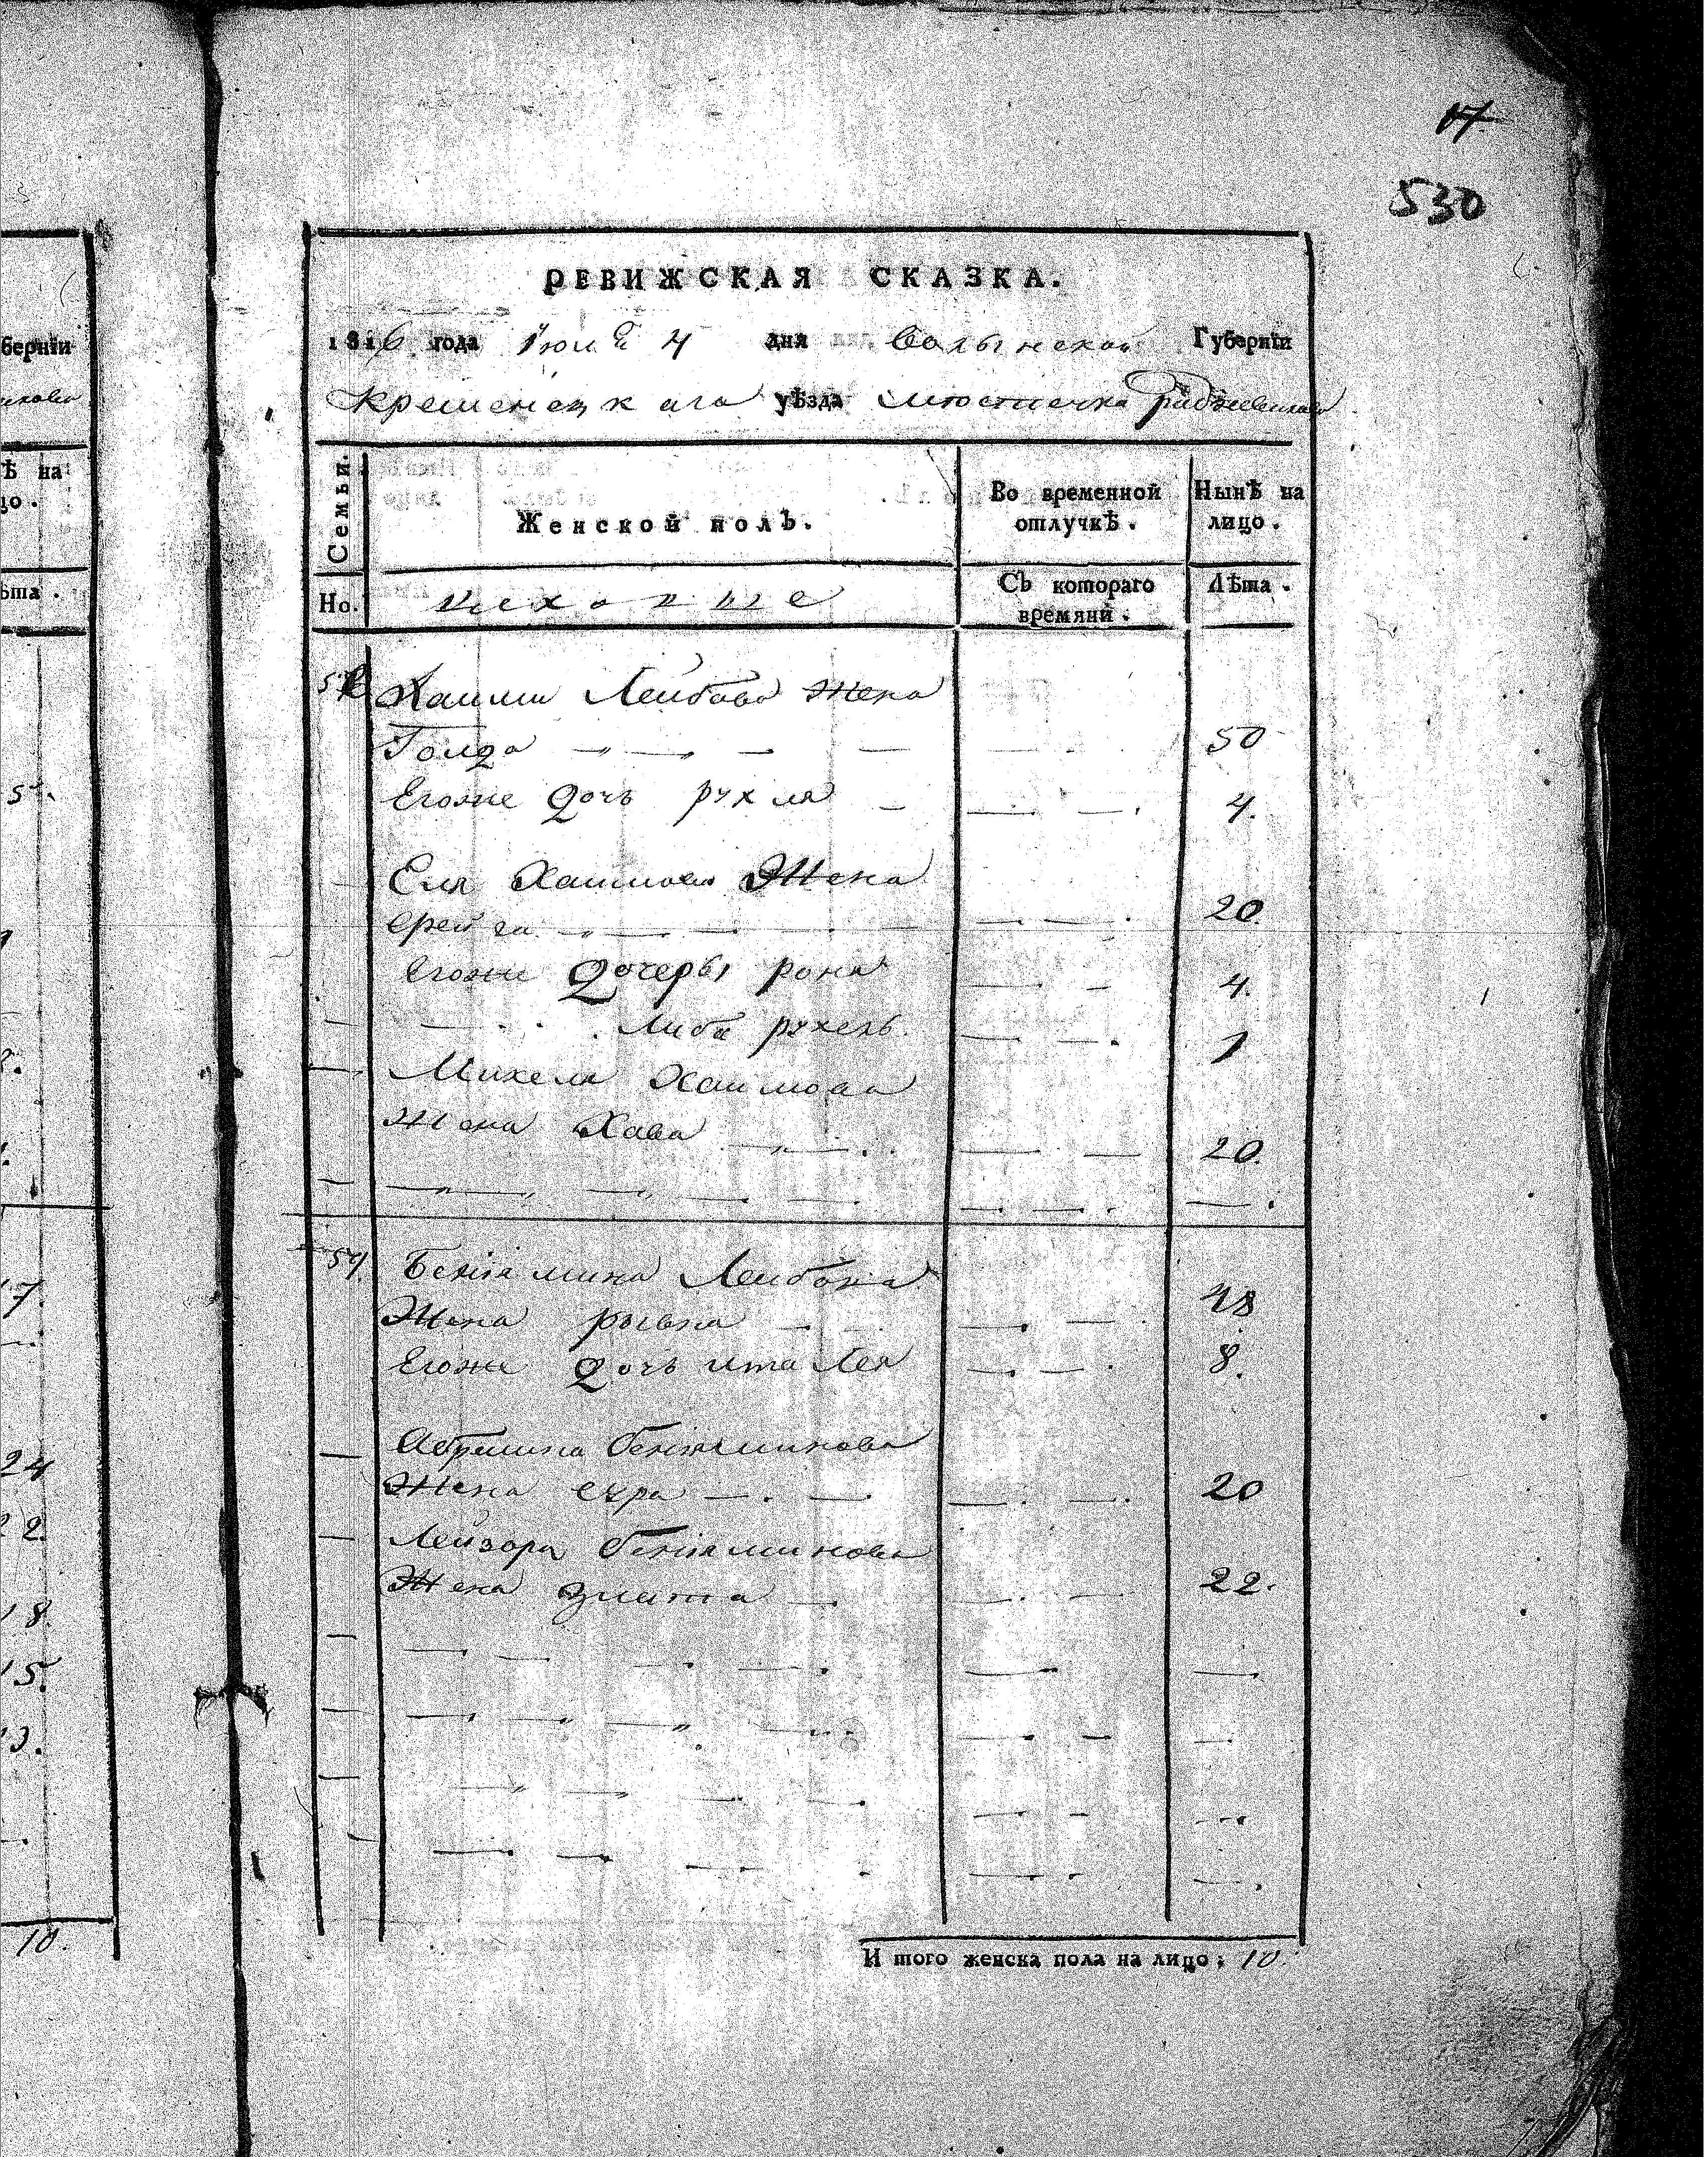 берніи
Ѣ на
цо.
ѣта.
5.
17
24
22
18.
15.
10.
17
530
РЕВИЖСКАЯ СКАЗКА.
1816 года Июля 4 дня Волынской Губерніи
Кременецкага уѣзда местечка Радзивилова
Семьи.
Женской полъ.
Во временной отлучкѣ.
Нынѣ на лицо.
Но.
Съ котораго времяни.
Лѣта.
Хаима Лейбова Жена
Голда — — — — — — 50
Егоже дочь рухля — — — 4.
Еля Хаимова Жена
фрейга — — — — — — 20.
Егоже дочеры рона — — 4.
— . . Либа рухель. — — 1
Михеля Хаимова
Жена Хава — — . . — — 20.
54. Бениямина Лейбова
Жена рывка — — — — 48
Егоже дочь ита Лея — — 8.
Абрамика бениаминова
Жена сура — . — — — 20
Лейзора бениаминова
Жена злата — — — 22.
И того женска пола на лицо; 10.